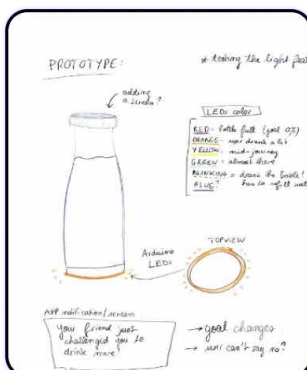 PROTOTYPE:
* testing the light
adding
a screen?
LEDs color
RED = bottle full (goal 0%)
ORANGE = user drank a bit
YELLOW = mid-journey
GREEN = almost there
BLINKING = drank the bottle!
BLUE?
has to refill
Arduino
LEDs
TOPVIEW
APP notification/screen
Your friend just
challenged you to
drink more!
→ goal changes
→ user can't say no?